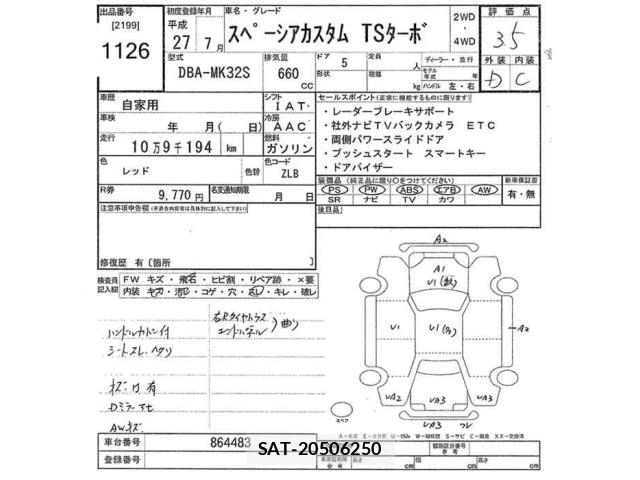 出品番号 初度登録年月 車名・グレード 2WD 評価点
[2199] 平成 スペーシアカスタム TSターボ ・ 3.5
1126 27年 7月 4WD
型式 排気量 ドア 5 定員 人 ディーラー・並行 外装 内装
DBA-MK32S 660 CC 形状 積載 kg モデル年式 年 ハンドル 左・右 D C
車歴 自家用 シフト IAT セールスポイント(正常に機能するものに限ります)
車検 年 月( 日) 冷房 AAC ・レーダーブレーキサポート
・社外ナビTVバックカメラ ETC
走行 10万9千194 km 燃料 ガソリン ・両側パワースライドドア
・プッシュスタート スマートキー
色 レッド 色替 色コード ZLB ・ドアバイザー
装備品 (純正品に限り○をつけてください) 新車保証書
R券 9,770円 名変通知期限 月 日 PS PW ABS エアB AW 有・無
SR ナビ TV カワ
注意事項申告欄 後日品
修復歴 有〔箇所 〕
検査員記入欄 FW キズ・飛石・ヒビ割・リペア跡・×要
内装 キズ・汚レ・コゲ・穴・スレ・キレ・破レ
A2
A1
U1
右Rクォータイヤハウス
エンドパネル 曲り
ハンドルカバー付
シートスレ ヘタリ
U1 U1 A2
キズ凹有
Dミラー
AWキズ
UA2 UA3 UA3
スペア UA3
A-キズ
車台番号 864483 SAT-20506250
登録番号
車庫証明用 参考 長さ cm 幅 cm 高さ cm